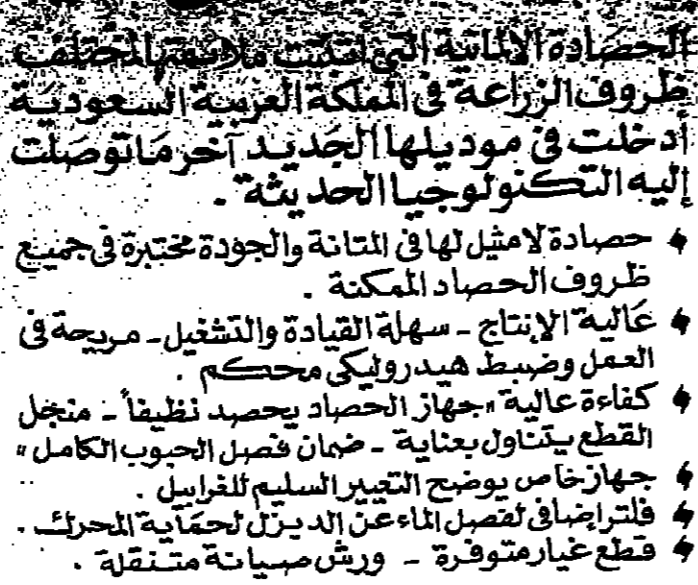 الحصادة الألمانية التي اثبتت ملائمتها لمختلف
ظروف الزراعة في المملكة العربية السعودية
أدخلت في موديلها الجديد آخر ما توصلت
إليه التكنولوجيا الحديثة .
حصادة لامثيل لها في المتانة والجودة مختبرة في جميع
ظروف الحصاد الممكنة .
عالية الإنتاج - سهلة القيادة والتشغيل - مريحة في
العمل وضبط هيدروليكي محكم .
كفاءة عالية "جهاز الحصاد يحصد نظيفاً - منجل
القطع يتناول بعناية - ضمان فصل الحبوب الكامل"
جهاز خاص يوضح التعيير السليم للغرابيل .
فلتر إضافى لفصل الماء عن الديزل لحماية المحرك .
قطع غيار متوفرة - ورش صيانة متنقلة .